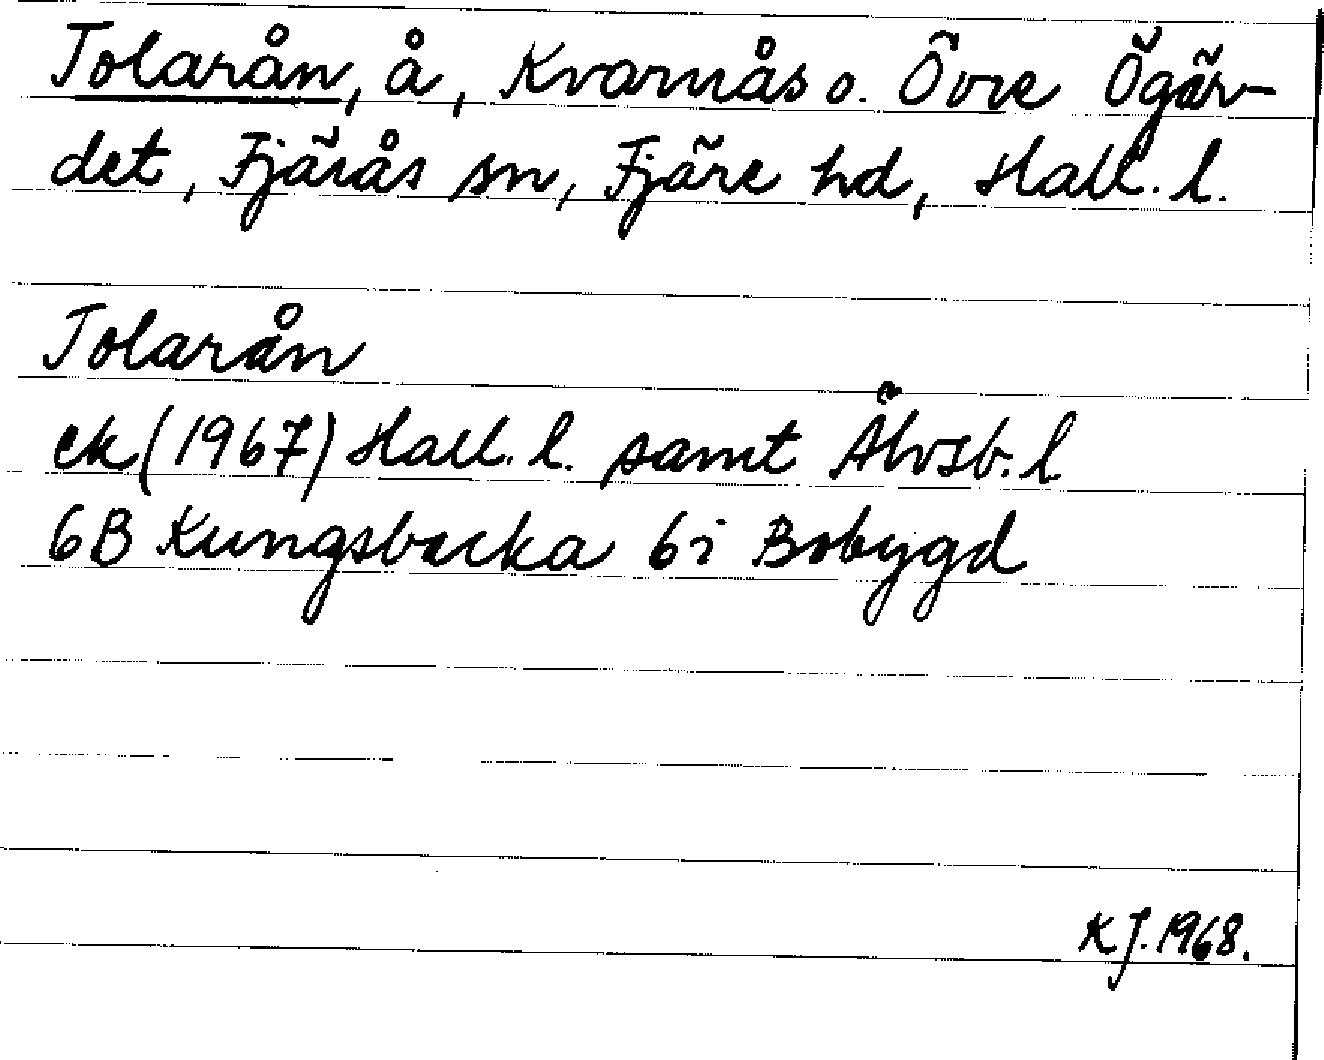 Tolarån, å, Kvarnås o. Övre Ögär-
det, Fjärås sn, Fjäre hd, Hall. l.
Tolarån
ek (1967) Hall. l. samt Älvsb. l
6B Kungsbacka 6i Bobygd
KJ. 1968.